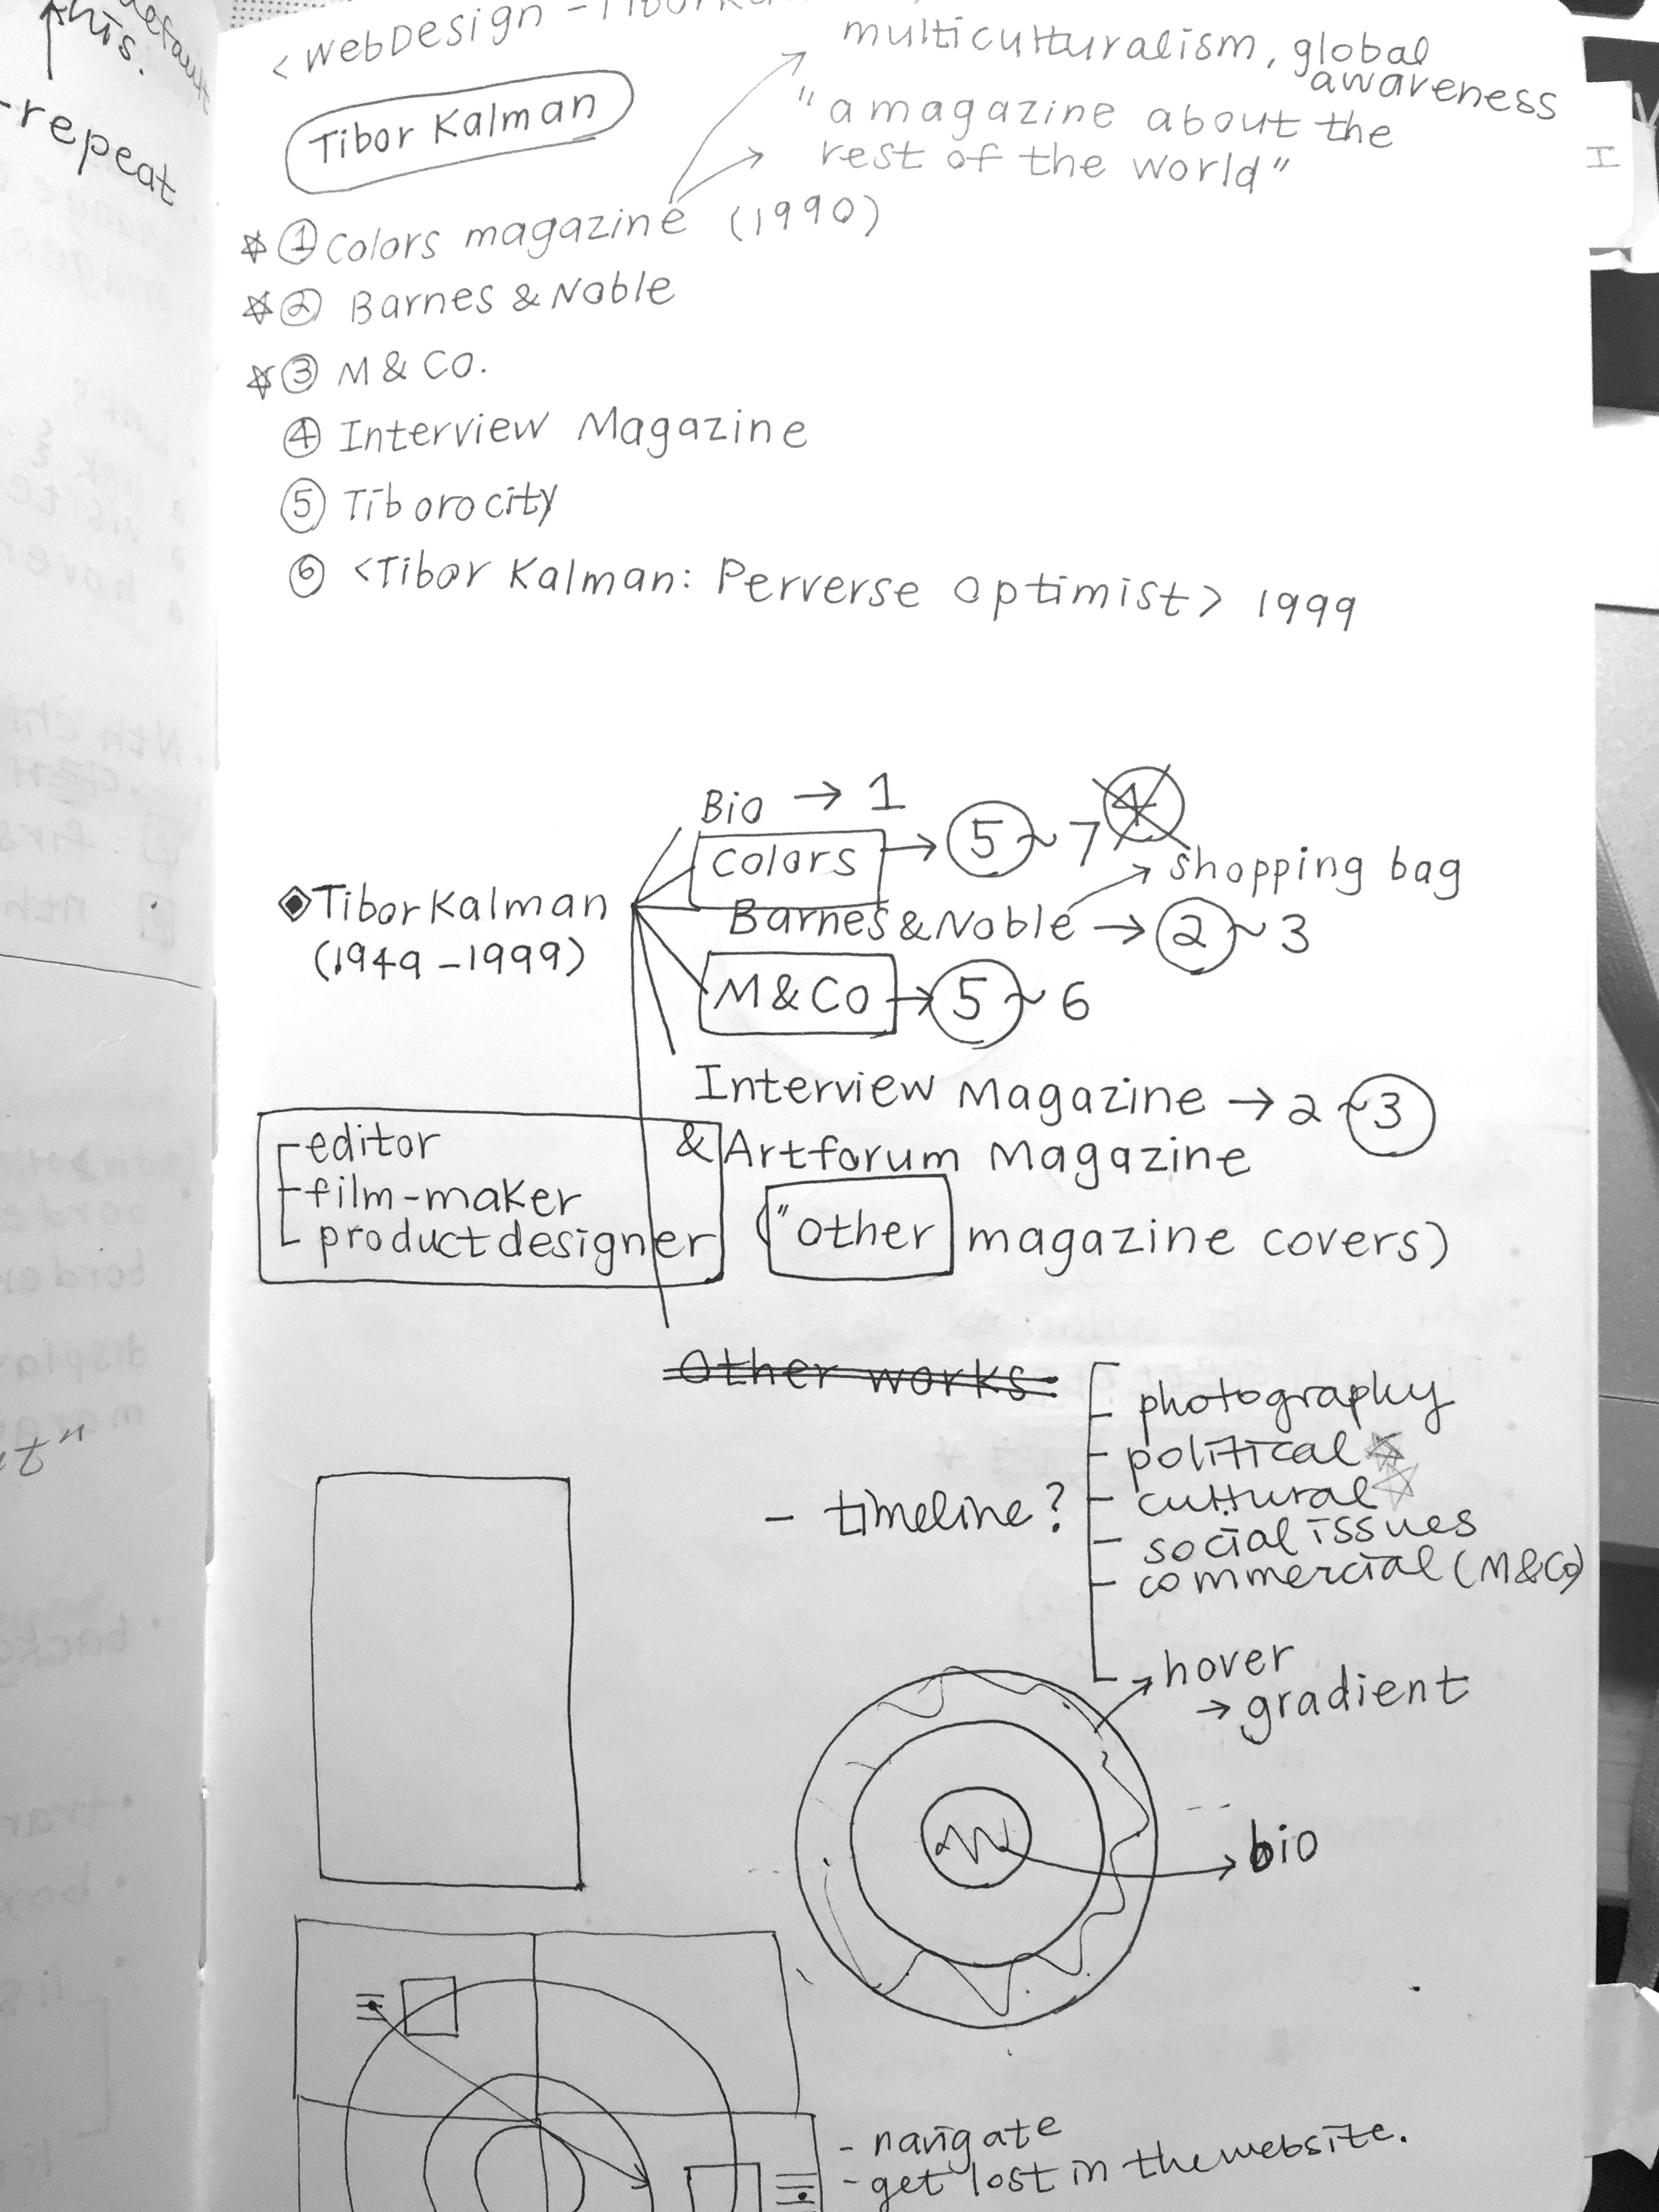 this.
default
-repeat
< WebDesign - Tibor
Tibor Kalman
multiculturalism, global
awareness
"a magazine about the
rest of the world"
☆ ① Colors magazine (1990)
☆ ② Barnes & Noble
☆ ③ M & Co.
④ Interview Magazine
⑤ Tiborocity
⑥ <Tibor Kalman: Perverse Optimist> 1999
Bio → 1
Colors → ⑤ ~ 7 4
shopping bag
◈ Tibor Kalman
(1949 - 1999)
Barnes & Noble → ② ~ 3
M & Co → ⑤ ~ 6
Interview Magazine → 2 ~ ③
& Artforum Magazine
("other magazine covers)
- editor
- film-maker
- product designer
Other works
- timeline?
- photography
- political ☆
- cultural ☆
- social issues
- commercial (M & Co)
→ hover
→ gradient
→ bio
- navigate
- get lost in the website.